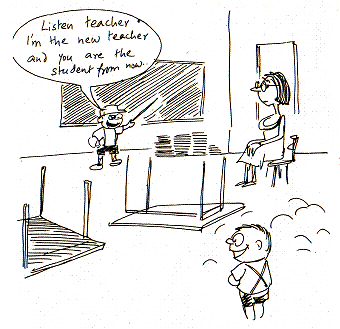 Listen teacher.
I'm the new teacher
and you are the
student from now.